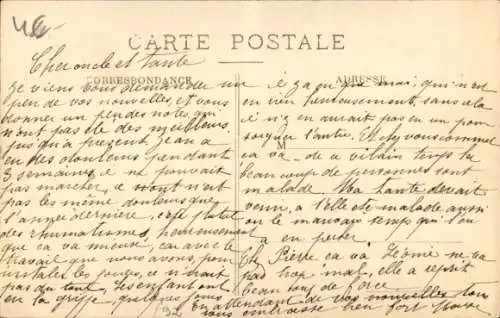 CARTE POSTALE
CORRESPONDANCE
ADRESSE
M
Cher oncle et tante
Je viens vous demander un
peu de vos nouvelles, et vous
donner un peu des notres qui
n'ont pas été des meilleurs
jusqu'à présent, Jean a
eu des douleurs pendant
3 semaines, il ne pouvait
pas marcher, ce n'sont n'est
pas les même douleurs que
l'année dernière, c'est plutot
des rhumatismes, heureusement
que ça va mieux, car avec le
travail que nous avons, pour
les loges, ce n'irait
pas du tout, les enfants ont
eu la grippe, quelques jours
il n'y a que moi, qui n'est
eu rien heureusement, sans cela
il n'y en aurait pas eu un pour
soigner l'autre. Et chez vous comment
ça va - de ce vilain temps il y a
beaucoup de personnes sont
malade. Ma tante devait
venir, a t'elle été malade aussi
ou le mauvais temps qui l'en
a en
Pierre ça va, Léonie ne va
pas trop mal, elle a reprit
beaucoup de force
en attendant de vos nouvelles tous
vous embrasse bien fort